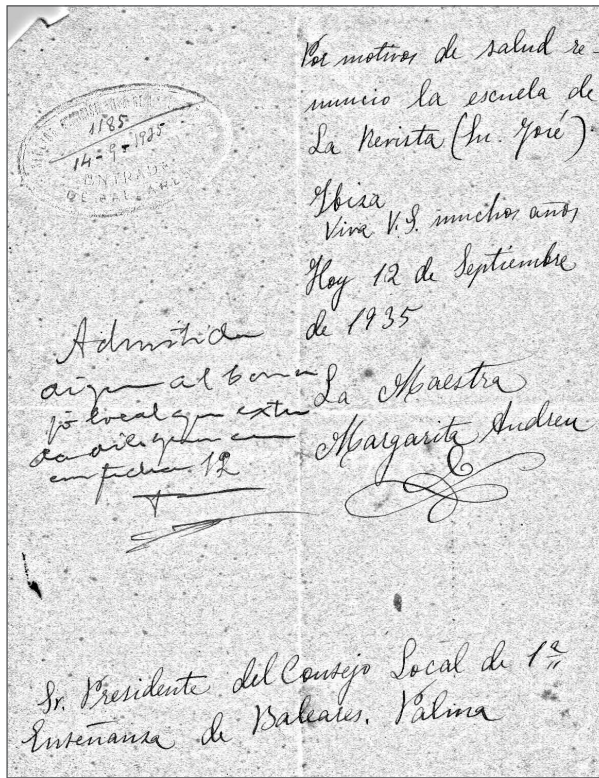 Por motivos de salud re-
nuncio la escuela de
La Revista (Sn. José)
Ibiza
Viva V.S. muchos años
Hoy 12 de Septiembre
de 1935
La Maestra
Margarita Andreu
1185
14-9-1935
ENTRADA
DE BALEARES
Admitida
al
local que
en fecha 12
Sr. Presidente del Consejo Local de 1ª
Enseñanza de Baleares. Palma